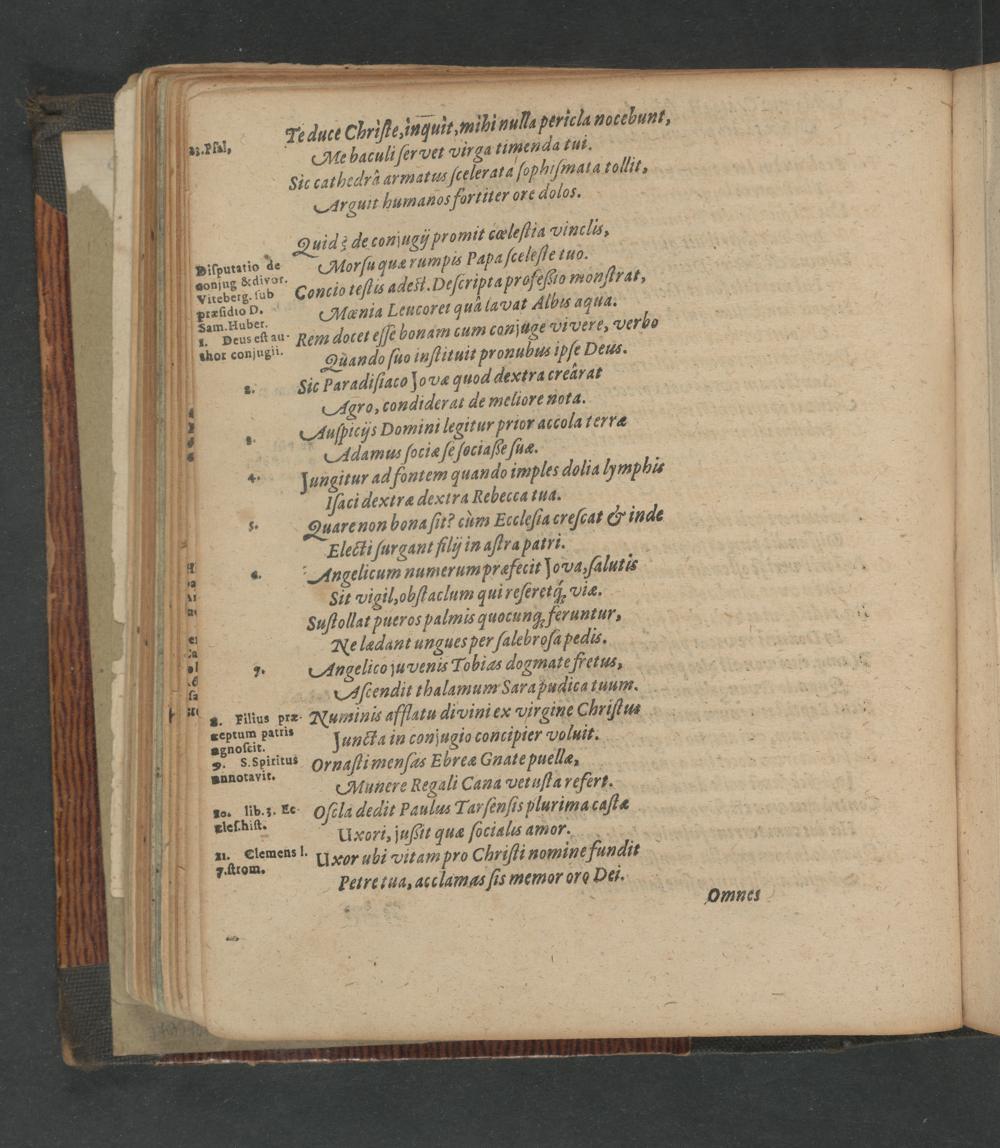 23.Psal,
Te duce Christe, inquit, mihi nulla pericla nocebunt,
Me baculi servet virga timenda tui.
Sic cathedrâ armatus scelerata sophismata tollit,
Arguit humanos fortiter ore dolos.
Quidq; de conjugij promit cœlestia vinclis,
Morsu quæ rumpis Papa sceleste tuo.
Disputatio de
conjug & divor.
Viteberg. sub
præsidio D.
Sam. Huber.
Concio testis adest. Descripta professio monstrat,
Mœnia Leucoret quâ lavat Albis aqua.
1. Deus est au-
thor conjugii.
Rem docet esse bonam cum conjuge vivere, verbo
Quando suo instituit pronubus ipse Deus.
2. Sic Paradisiaco Jovæ quod dextra creârat
Agro, condiderat de meliore nota.
3. Auspicijs Domini legitur prior accola terræ
Adamus sociæ se sociasse suæ.
4. Jungitur ad fontem quando imples dolia lymphis
Isaci dextræ dextra Rebecca tua.
5. Quare non bona sit? cùm Ecclesia crescat & inde
Electi surgant filij in astra patri.
6. Angelicum numerum præfecit Jova, salutis
Sit vigil, obstaclum qui reseretq́; viæ.
Sustollat pueros palmis quocunq; feruntur,
Ne lædant ungues per salebrosa pedis.
7. Angelico juvenis Tobias dogmate fretus,
Ascendit thalamum Sara pudica tuum.
8. Filius præ-
ceptum patris
agnoscit.
Numinis afflatu divini ex virgine Christus
Juncta in conjugio concipier voluit.
9. S. Spiritus
annotavit.
Ornasti mensas Ebreæ Gnate puellæ,
Munere Regali Cana vetusta refert.
10. lib. 3. Ec-
cles. hist.
Oscla dedit Paulus Tarsensis plurima castæ
Uxori, jussit quæ socialis amor.
11. Clemens l.
7. strom.
Uxor ubi vitam pro Christi nomine fundit
Petre tua, acclamas sis memor oro Dei.
Omnes